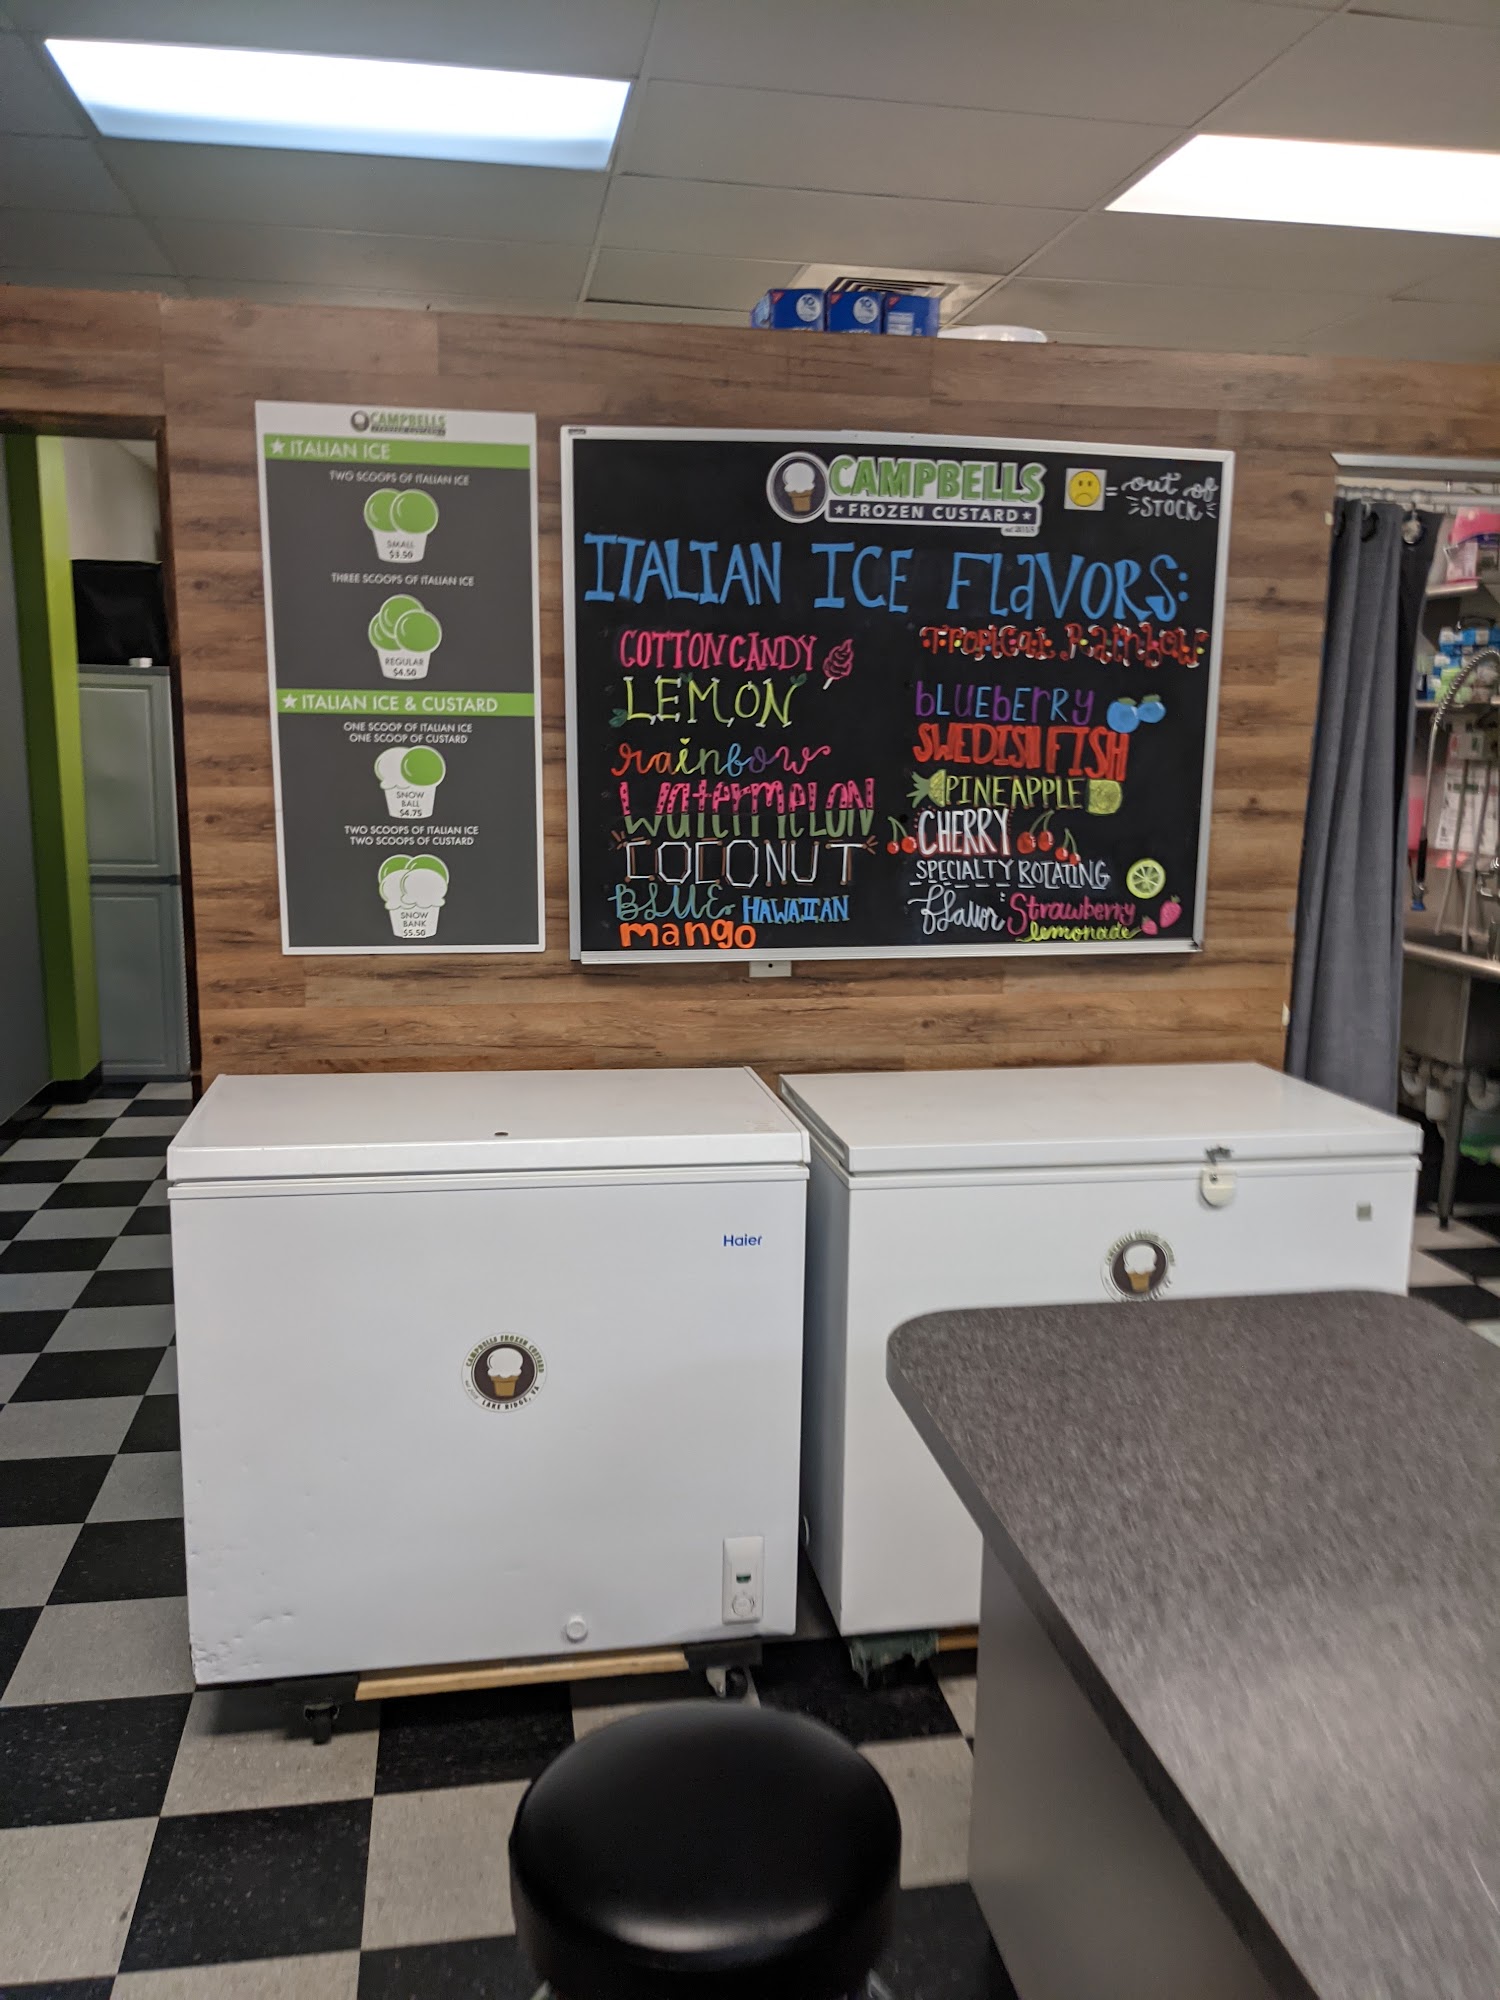 CAMPBELLS
FROZEN CUSTARD
★ ITALIAN ICE
TWO SCOOPS OF ITALIAN ICE
SMALL
$3.50
THREE SCOOPS OF ITALIAN ICE
REGULAR
$4.50
★ ITALIAN ICE & CUSTARD
ONE SCOOP OF ITALIAN ICE
ONE SCOOP OF CUSTARD
SNOW
BALL
$4.75
TWO SCOOPS OF ITALIAN ICE
TWO SCOOPS OF CUSTARD
SNOW
BANK
$5.50
CAMPBELLS
★ FROZEN CUSTARD ★
= out of
STOCK
ITALIAN ICE FLaVORS:
COTTON CANDY
LEMON
rainbow
Watermelon
WateRMeLON
COCONUT
BLUE HAWAIIAN
mango
Tropical Rainbow
bLUEbERRY
SWEDISH FISH
PINEAPPLE
CHERRY
SPECIALTY ROTATING
flavor: Strawberry
lemonade
Haier
CAMPBELLS FROZEN CUSTARD
LAKE RIDGE, VA